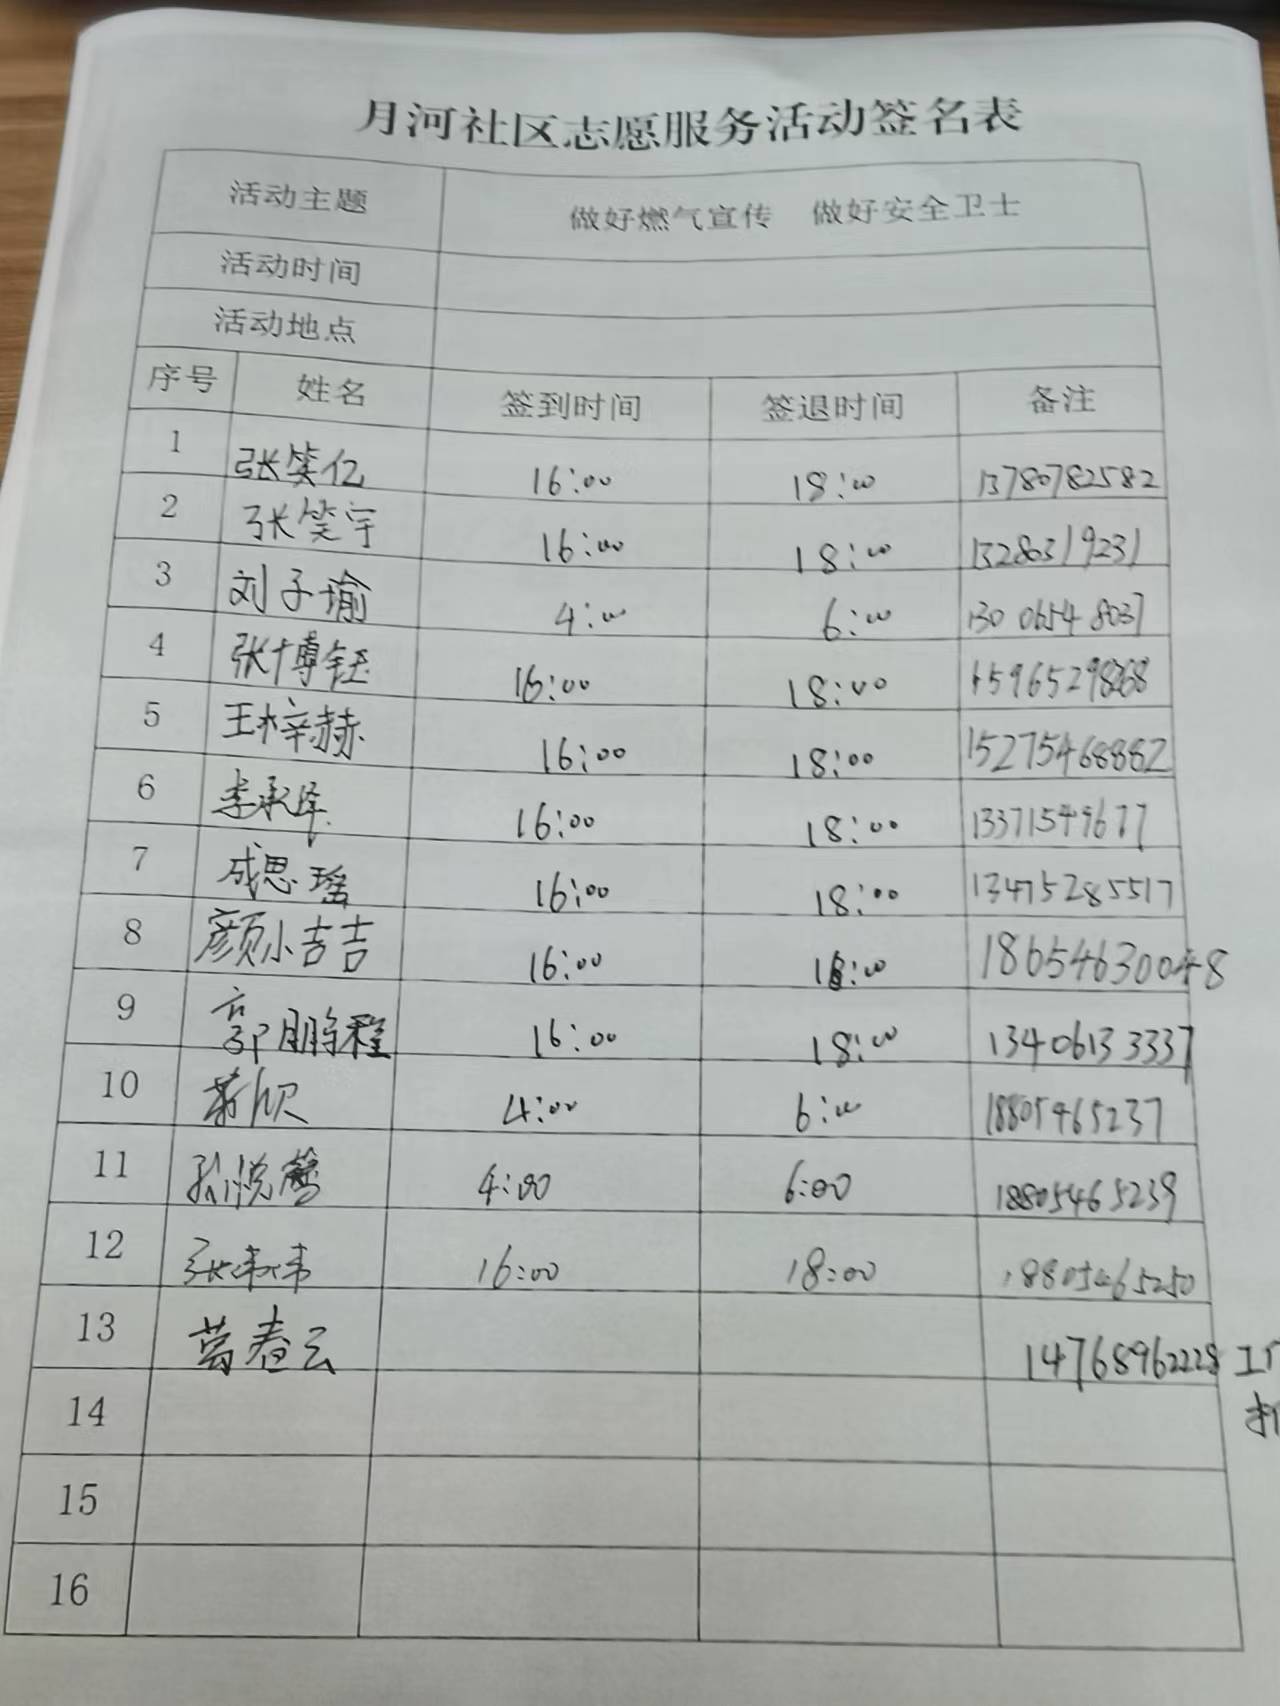 月河社区志愿服务活动签名表
活动主题 做好燃气宣传 做好安全卫士
活动时间
活动地点
序号 姓名 签到时间 签退时间 备注
1 张笑亿 16:00 18:00 13780782582
2 张笑宇 16:00 18:00 13280319231
3 刘子瑜 4:00 6:00 130 0654 8037
4 张博钰 16:00 18:00 15965298268
5 王梓赫 16:00 18:00 15275468882
6 李承泽 16:00 18:00 13371549677
7 成思瑶 16:00 18:00 13475285517
8 颜小吉吉 16:00 18:00 18654630048
9 郭鹏程 16:00 18:00 13406133337
10 4:00 6:00 18805465237
11 孙悦馨 4:00 6:00 18805465239
12 张伟伟 16:00 18:00 18805465250
13 葛春云 14768962228
14
15
16